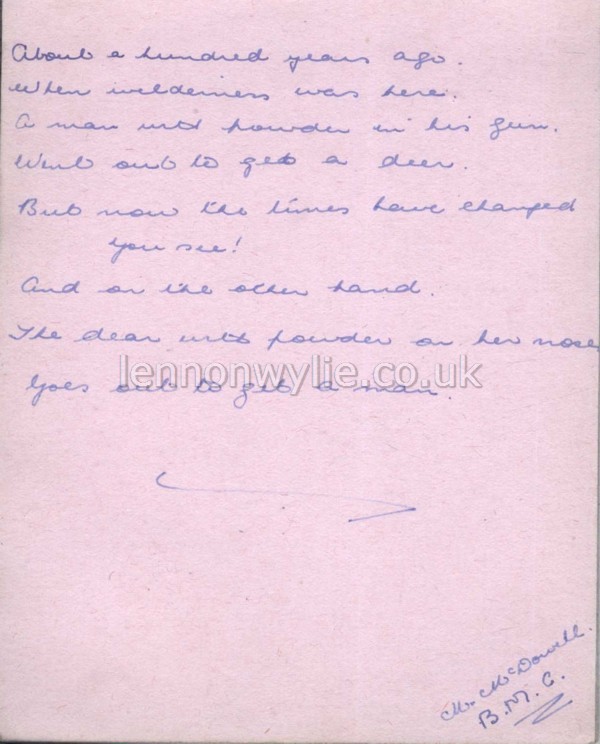 About a hundred years ago.
When wilderness was here.
A man with powder in his gun.
Went out to get a deer.
But now the times have changed
you see!
And on the other hand.
The dear with powder on her nose
lennonwylie.co.uk
Goes out to get a man.
M. McDowell.
B.M.C.